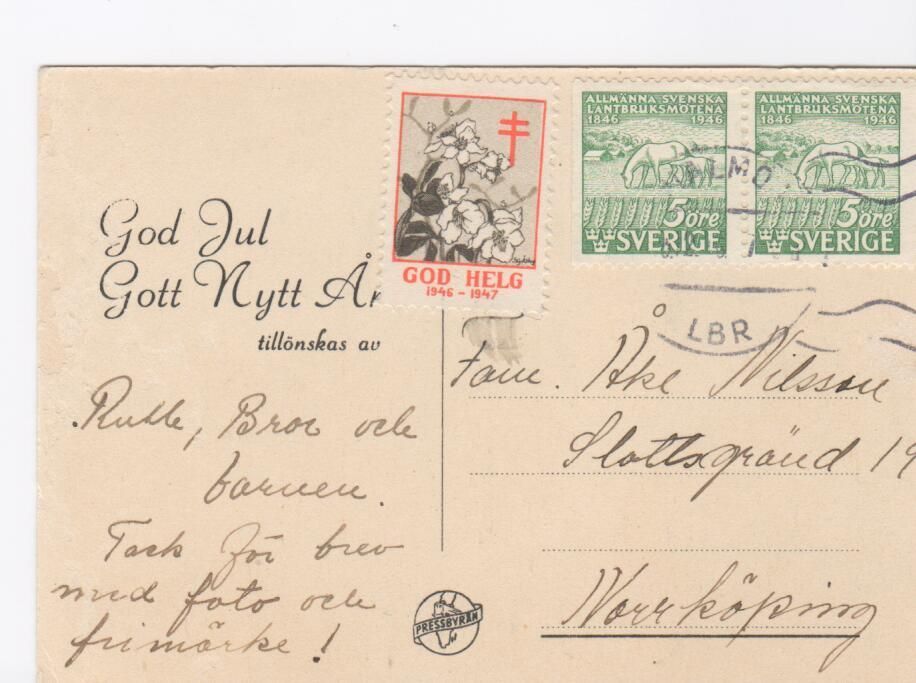 God Jul
Gott Nytt År
tillönskas av
Rulle, Bror och
barnen.
Tack för brev
med foto och
frimärke!
GOD HELG
1946 - 1947
ALLMÄNNA SVENSKA
LANTBRUKSMÖTENA
1846 1946
5 öre
SVERIGE
ALLMÄNNA SVENSKA
LANTBRUKSMÖTENA
1846 1946
5 öre
SVERIGE
MALMÖ
LBR
Fam. Åke Nilsson
Slottsgränd 19
Norrköping
PRESSBYRÅN